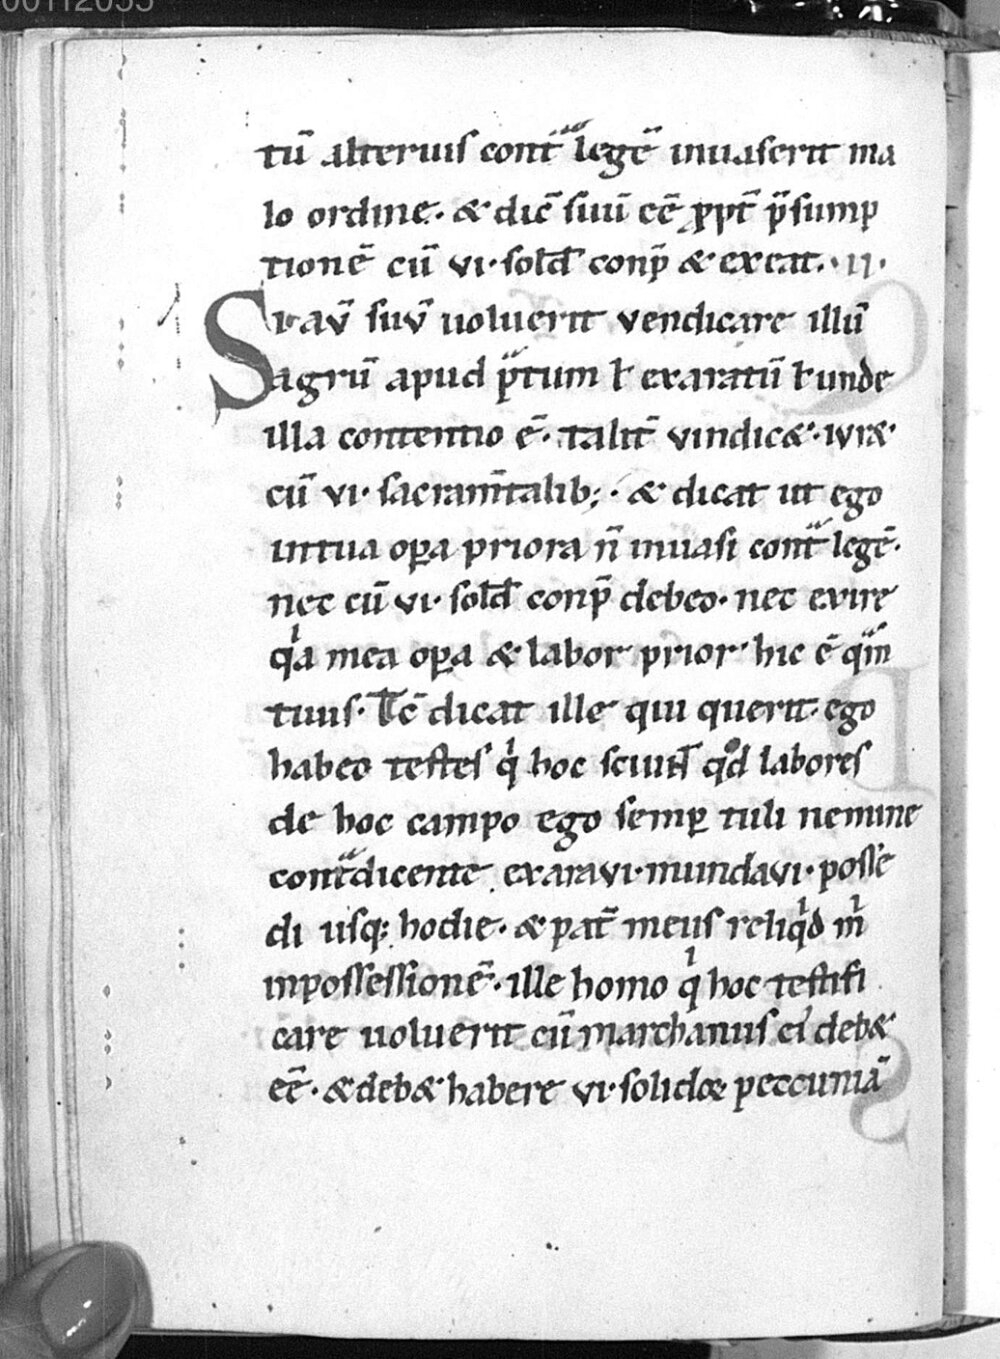 00112055
tū alteruiſ cont̄ᵃ legē inuaſerit ma
lo ordine· & dic̄ ſuū eē ꝓpt̄ p̄ſump
tionē cū vi· ſold̄ conp̄ & exeat·· II·
Si aū ſuū uoluerit vendicare illū
agrū apud p̄tum ł exaratū ł unde
illa contentio ē· talit̄ vindic&··iur&·
cū vi· ſacram̄talib;· & dicat ut ego
intua oꝑa priora n̄ inuaſi cont̄ᵃ legē·
nec cū vi· ſold̄ conp̄ debeo· nec exire
qⁱa mea oꝑa & labor prior hic ē qᵃ̄m
tuuſ· T̄c̄ dicat ille qui querit· ego
habeo teſteſ qⁱ hoc ſciunt̄ qᵒd laboreſ
de hoc campo ego ſemꝑ tuli nemine
cont̄ᵃdicente exaravi·mundavi· poſſe
di uſq; hodie· & pat̄ meuſ reliqⁱd mⁱ
inpoſſeſſionē· ille homo qⁱ hoc teſtifi
care uoluerit cū marchanuſ ei' deb&
eē· & deb& habere vi·ſolidoꝝ peccuniā